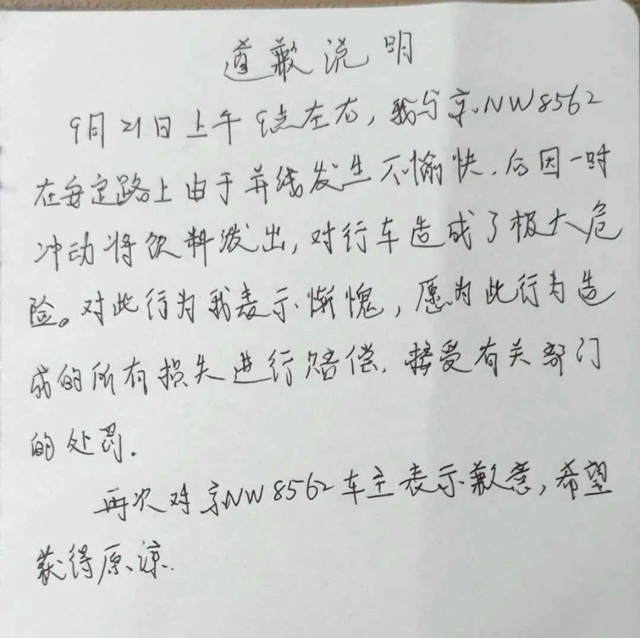 道歉说明
9月21日上午9点左右，我与京NW8562
在安定路上由于并线发生不愉快.后因一时
冲动将饮料泼出，对行车造成了极大危
险。对此行为我表示惭愧，愿为此行为造
成的所有损失进行赔偿.接受有关部门
的处罚.
再次对京NW8562车主表示歉意，希望
获得原谅.